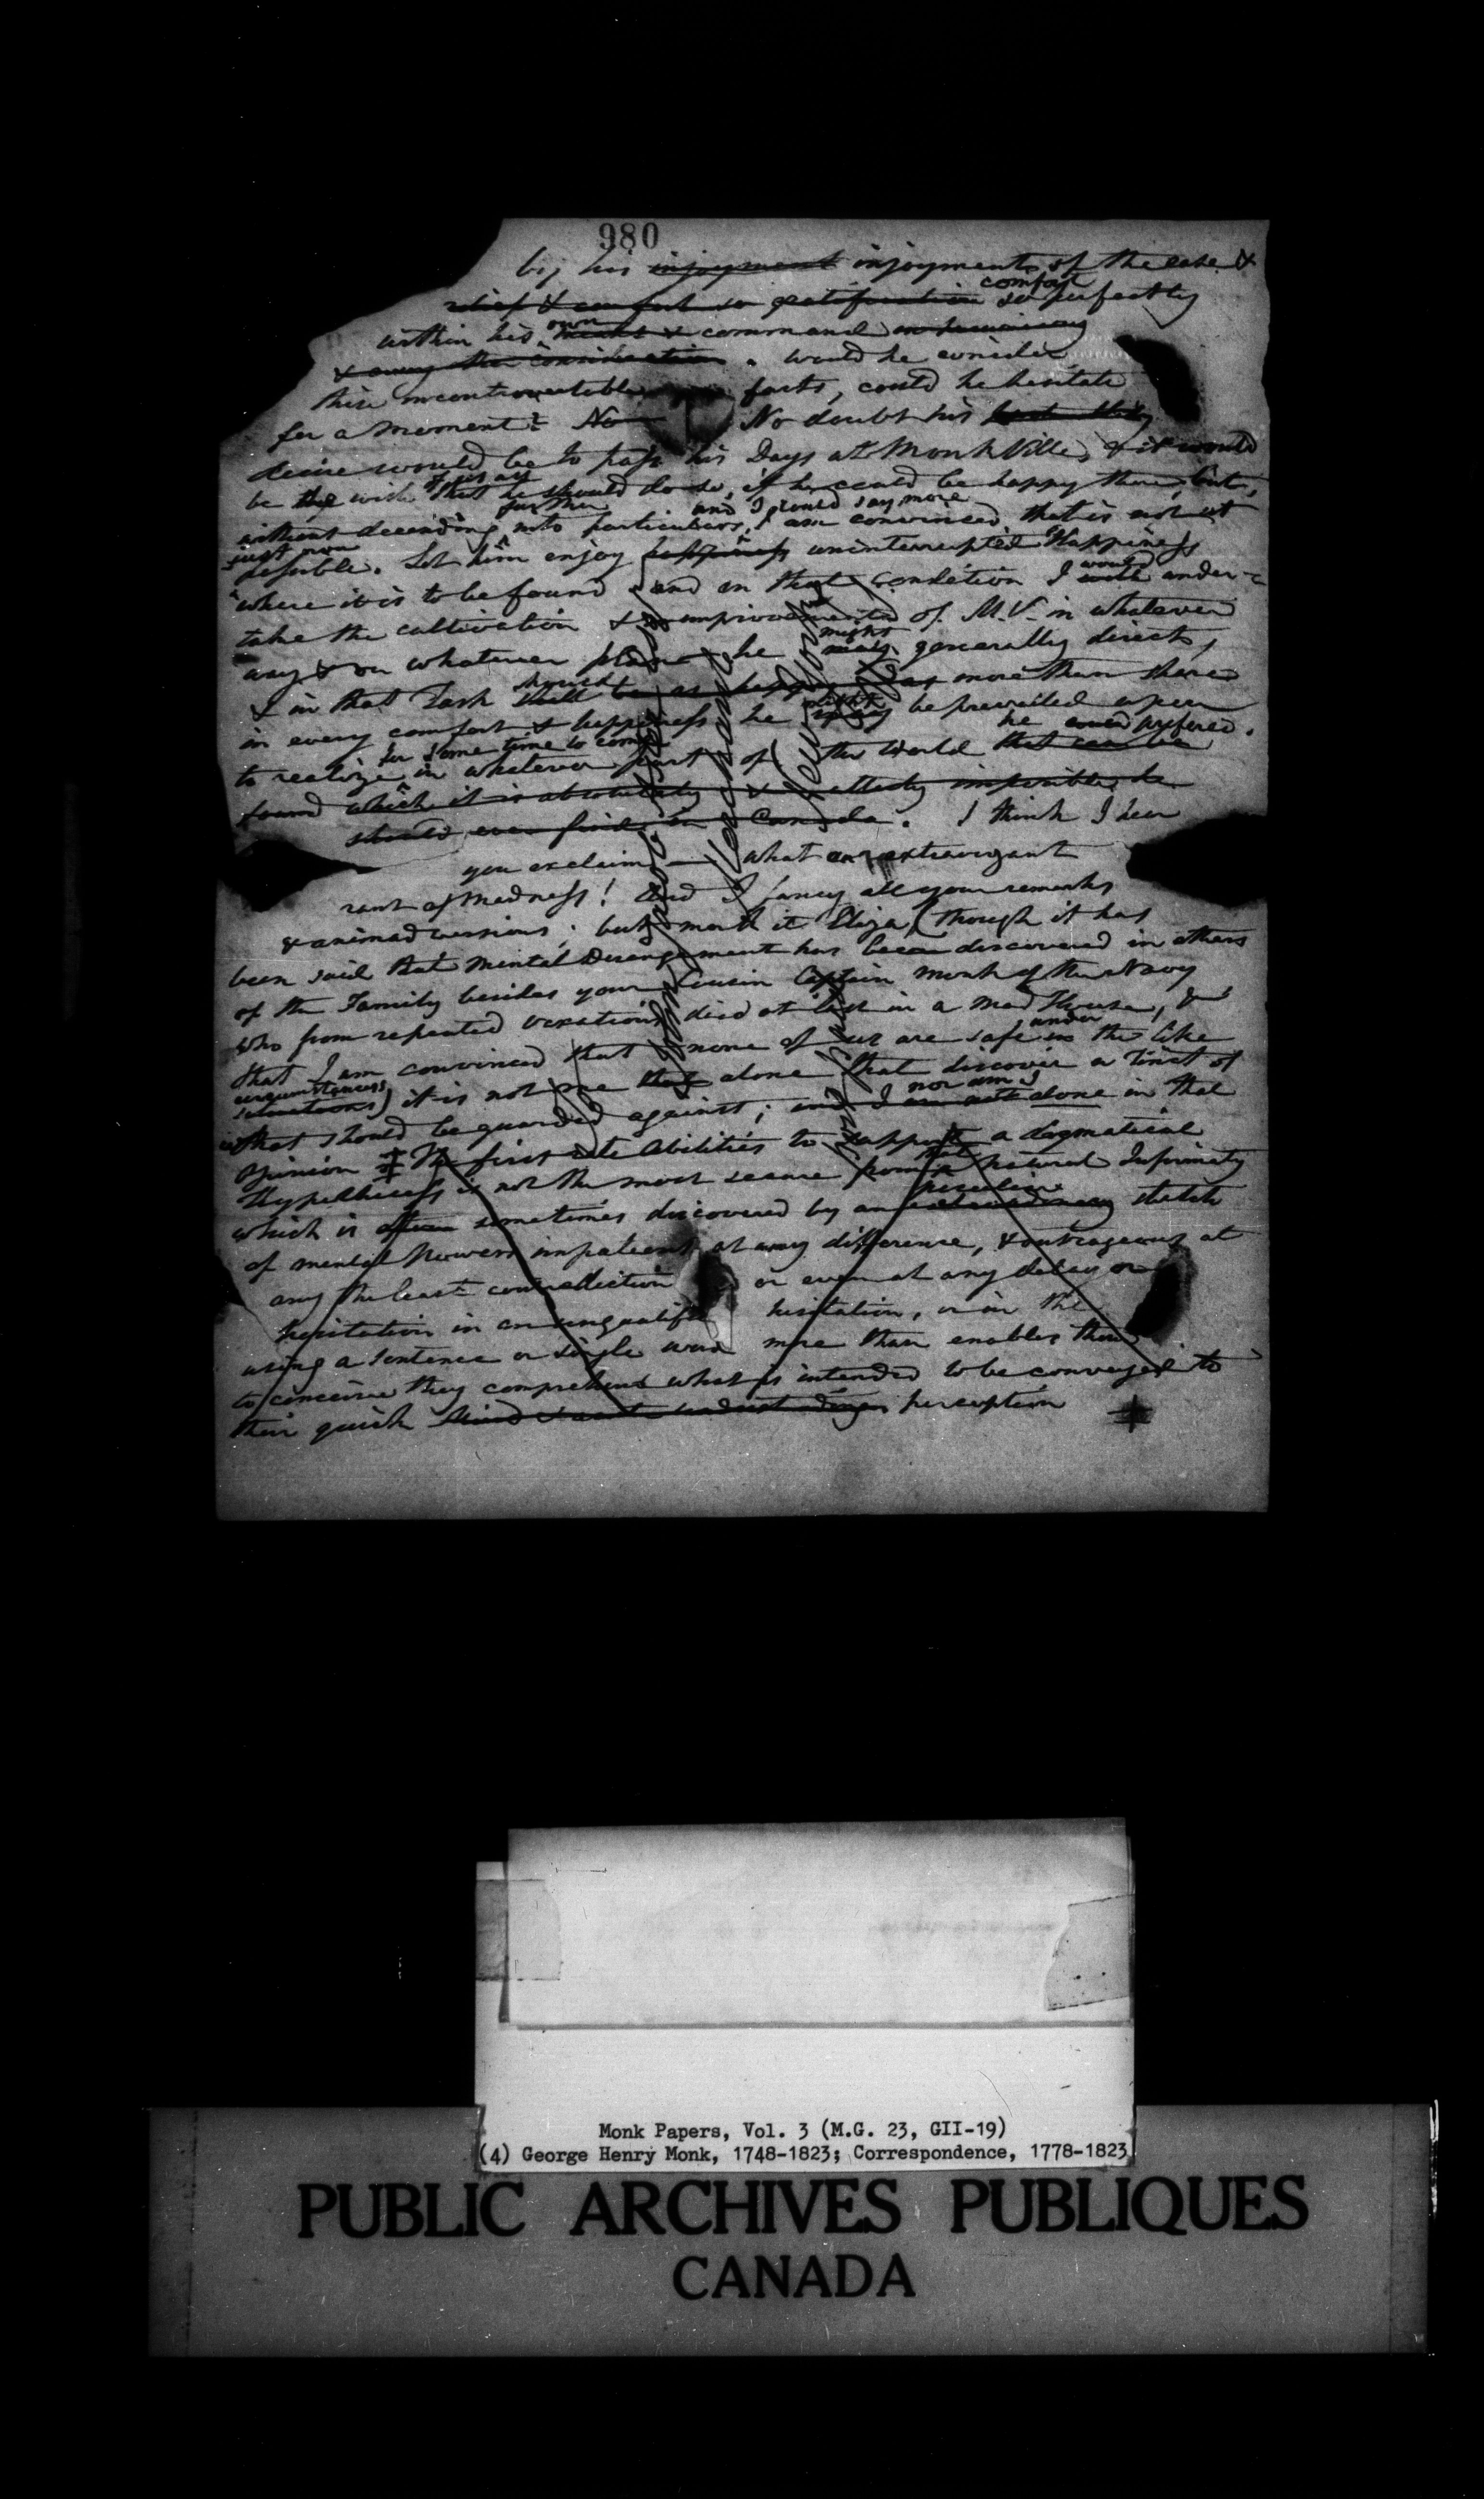 980
by his injoyment injoyments of the ease &
relief & comfort so gratification comfort so perfectly
within his own command
& every other consideration. would he consider
these incontrovertible facts, could he hesitate
for a moment? No No doubt his
desire would be to pass his Days at MonkVille, & it would
be the wish of us all that he should do so, if he could be happy there, but,
without decending further into particulars, and I could say more I am convinced that is not at
just now possible. Let him enjoy happiness uninterrupted Happiness
where it is to be found and in that condition I will would under-
take the cultivation & improvements of M.V. in whatever
way & on whatever plan he may might generally direct,
& in that Task shall should be as happy as more than share
in every comfort & happiness he may might be prevailed upon
to realize for some time to come in whatever part of the World that can be he prefered.
found which it is absolutely & utterly impossible he
should ever find in Canada. I think I hear
you exclaim — what an extravagant
rant of Madness! and I fancy all your remarks
& animadversions; but mark it Eliza, (though it has
been said that Mental Derangement has been discovered in others
of the Family besides your Cousin Captain Monk of the Navy
who from repeated vexations died at last in a Mad House, &
that I am convinced that none of us are safe in under the like
situations circumstances) it is not me that alone that discover a tinct of
what should be guarded against; and I am not nor am I alone in that
opinion. The first rate Abilities to support a dogmatical
Hypothesis is not the most secure from that natural Infirmity
which is often sometimes discovered by an extraordinary peculiar stretch
of mental Powers impatient at any difference, & outrageous at
any the least contradiction or even at any delay or
hesitation in an unqualified hesitation, or in the
using a sentence or single word more than enables them
to conceive they comprehend what is intended to be conveyed to
their quick perception
Monk Papers, Vol. 3 (M.G. 23, GII-19)
(4) George Henry Monk, 1748-1823; Correspondence, 1778-1823
PUBLIC ARCHIVES PUBLIQUES
CANADA